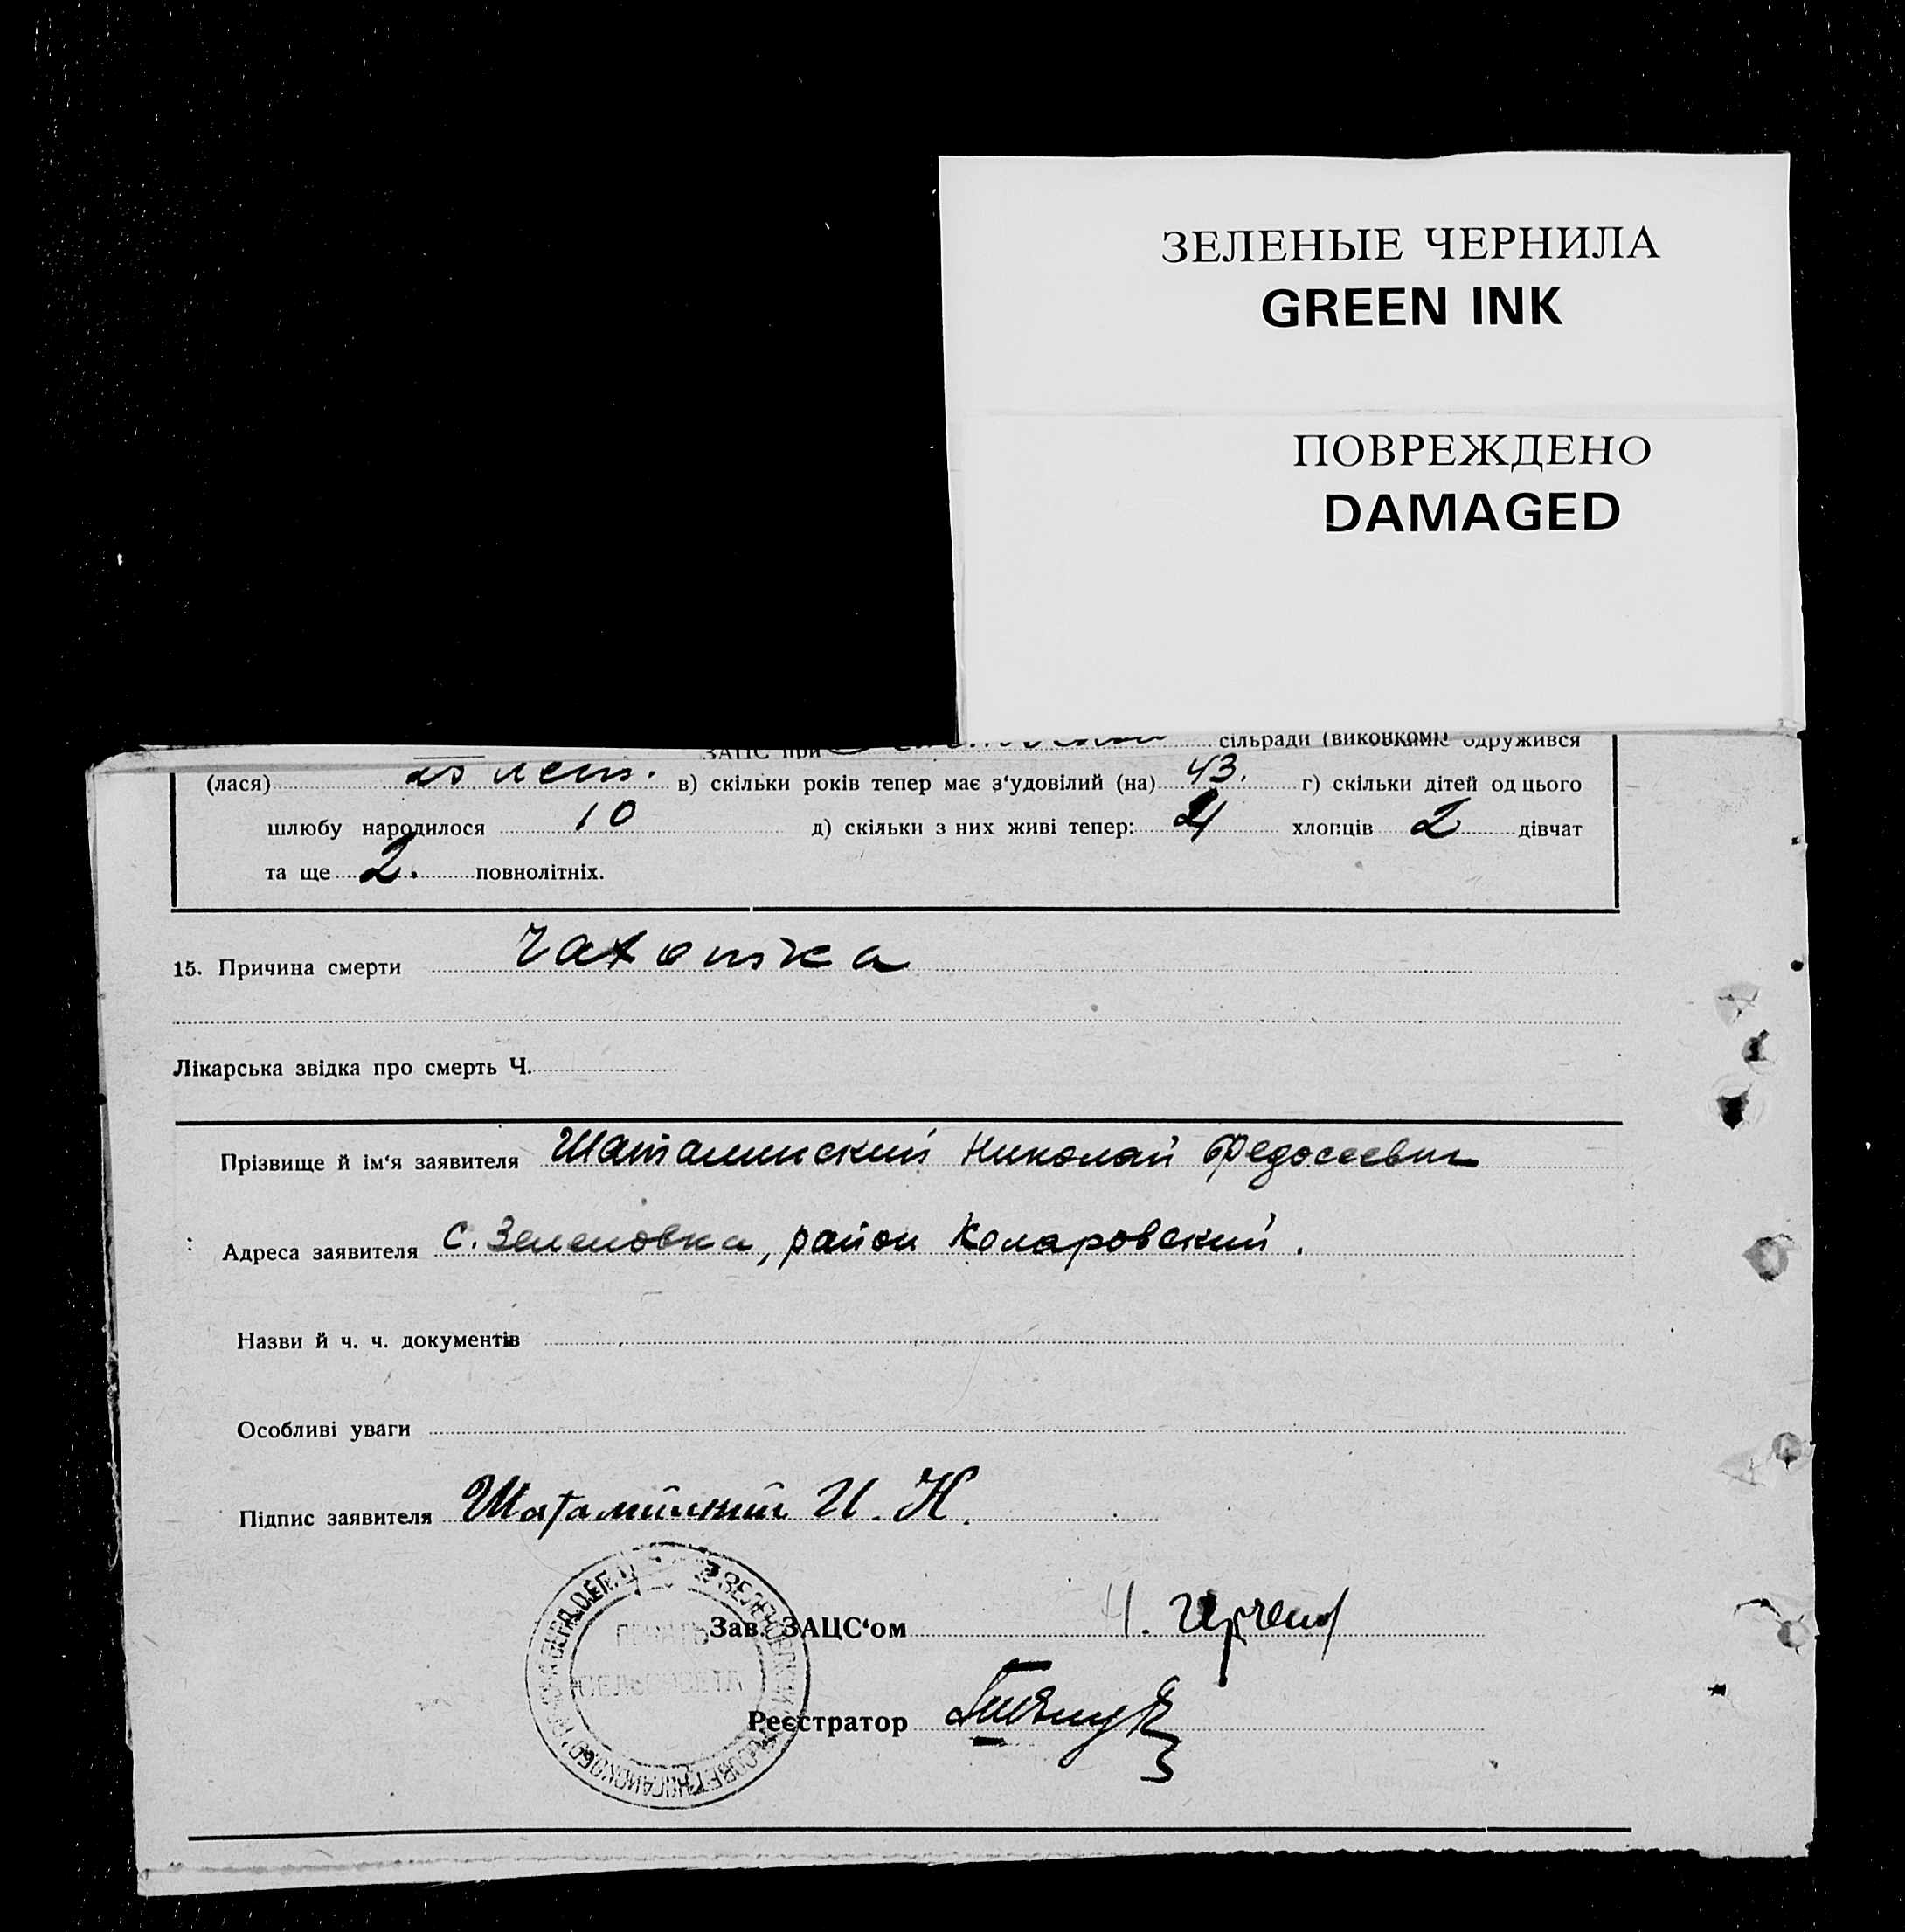 ЗЕЛЕНЫЕ ЧЕРНИЛА
GREEN INK
ПОВРЕЖДЕНО
DAMAGED
ЗАЦС при сільради одружився
(лася) лет. в) скільки років тепер має з‘удовілий (на) 43. г) скільки дітей од цього
шлюбу народилося 10 д) скільки з них живі тепер: хлопців 2 дівчат
та ще 2. повнолітніх.
15. Причина смерти чахотка
Лікарська звідка про смерть Ч.
Прізвище й ім‘я заявителя Шаталинский Николай Федосеевич
Адреса заявителя с. Зеленовка, район Коларовский.
Назви й ч. ч. документів
Особливі уваги
Підпис заявителя И. Н.
ПЕЧАТЬ
СЕЛЬСОВЕТА
Зав. ЗАЦС‘ом
Реєстратор